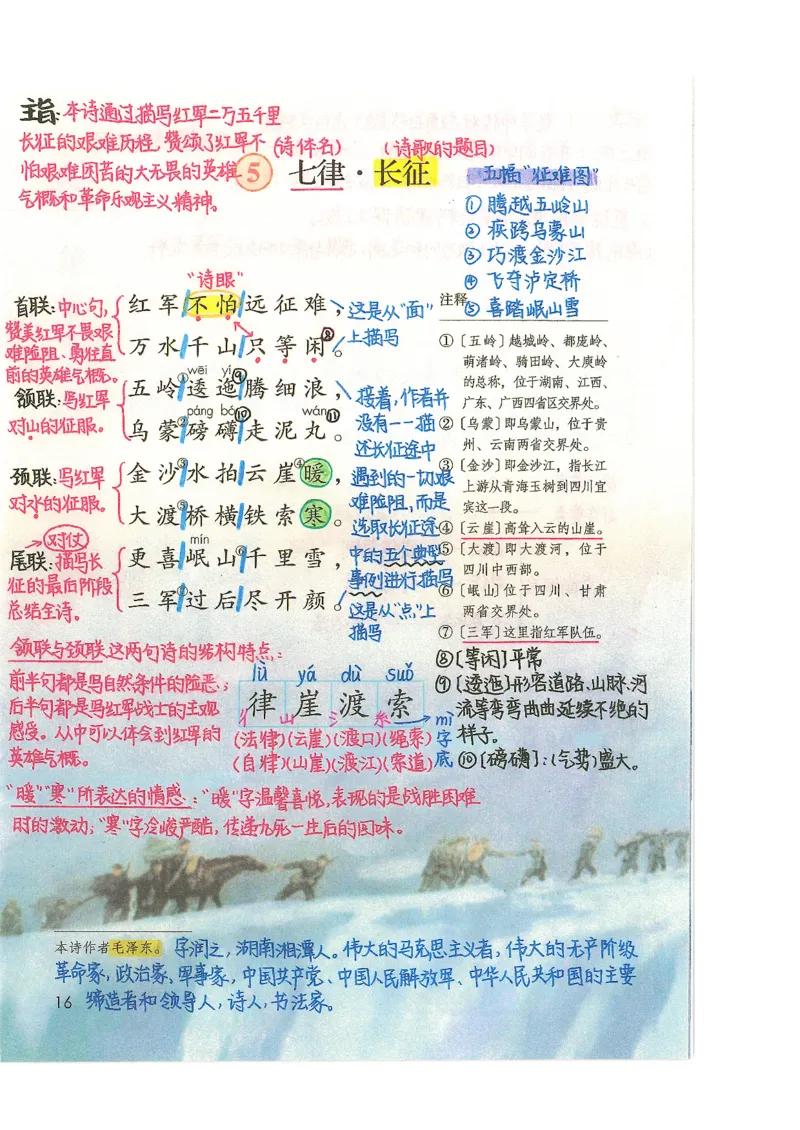 主旨：本诗通过描写红军二万五千里
长征的艰难历程，赞颂了红军不
怕艰难困苦的大无畏的英雄
气概和革命乐观主义精神。
（诗体名）（诗歌的题目）
5 七律·长征
五幅“征难图”
①腾越五岭山
②疾跨乌蒙山
③巧渡金沙江
④飞夺泸定桥
⑤喜踏岷山雪
“诗眼”
首联：中心句，
赞美红军不畏艰
难险阻、勇往直
前的英雄气概。
红军不怕远征难，
万水千山只等闲⑧。
这是从“面”
上描写
颔联：写红军
对山的征服。
wēi yí
五岭①逶迤⑨腾细浪，
páng bó wán
乌蒙②磅礴⑩走泥丸⑪。
颈联：写红军
对水的征服。
金沙③水拍云崖④暖，
大渡⑤桥横铁索寒。
对仗
尾联：描写长
征的最后阶段
总结全诗。
mín
更喜岷山⑥千里雪，
三军⑦过后尽开颜。
接着，作者并
没有一一描
述长征途中
遇到的一切艰
难险阻，而是
选取长征途
中的五个典型
事例进行描写
这是从“点”上
描写
注释
①〔五岭〕越城岭、都庞岭、
萌渚岭、骑田岭、大庾岭
的总称，位于湖南、江西、
广东、广西四省区交界处。
②〔乌蒙〕即乌蒙山，位于贵
州、云南两省交界处。
③〔金沙〕即金沙江，指长江
上游从青海玉树到四川宜
宾这一段。
④〔云崖〕高耸入云的山崖。
⑤〔大渡〕即大渡河，位于
四川中西部。
⑥〔岷山〕位于四川、甘肃
两省交界处。
⑦〔三军〕这里指红军队伍。
⑧〔等闲〕平常
⑨〔逶迤〕形容道路、山脉、河
流等弯弯曲曲延续不绝的
样子。
⑩〔磅礴〕：（气势）盛大。
颔联与颈联这两句诗的结构特点：
前半句都是写自然条件的险恶；
后半句都是写红军战士的主观
感受。从中可以体会到红军的
英雄气概。
lǜ yá dù suǒ
律 崖 渡 索
彳 山 氵 糸 mì
字
底
（法律）（云崖）（渡口）（绳索）
（自律）（山崖）（渡江）（索道）
“暖”“寒”所表达的情感：“暖”字温馨喜悦，表现的是战胜困难
时的激动；“寒”字冷峻严酷，传递九死一生后的回味。
本诗作者毛泽东。字润之，湖南湘潭人。伟大的马克思主义者，伟大的无产阶级
革命家，政治家、军事家，中国共产党、中国人民解放军、中华人民共和国的主要
缔造者和领导人，诗人，书法家。
16